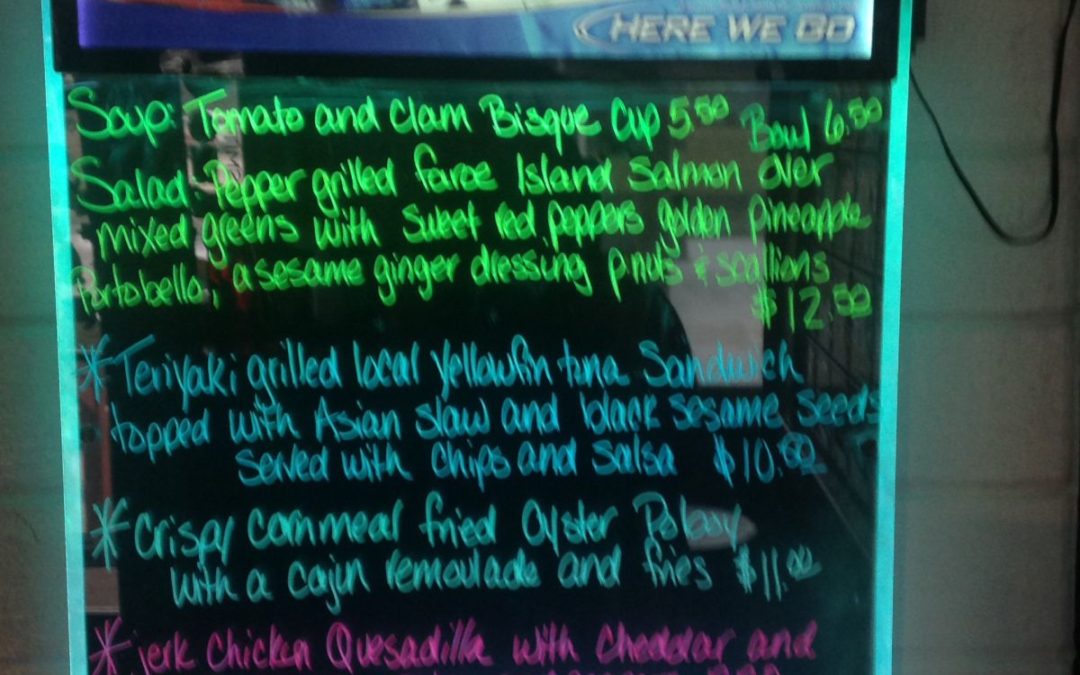 HERE WE GO
Soup: Tomato and Clam Bisque Cup 5.50 Bowl 6.50
Salad: Pepper grilled faroe Island Salmon Over
mixed greens with Sweet red peppers golden pineapple
Portobello, a sesame ginger dressing pnuts & scallions
$12.50
*Teriyaki grilled local yellowfin tuna Sandwich
topped with Asian slaw and black sesame seeds
served with chips and salsa $10.00
*Crispy cornmeal fried Oyster Poboy
with a cajun remoulade and fries $11.00
*jerk Chicken Quesadilla with cheddar and